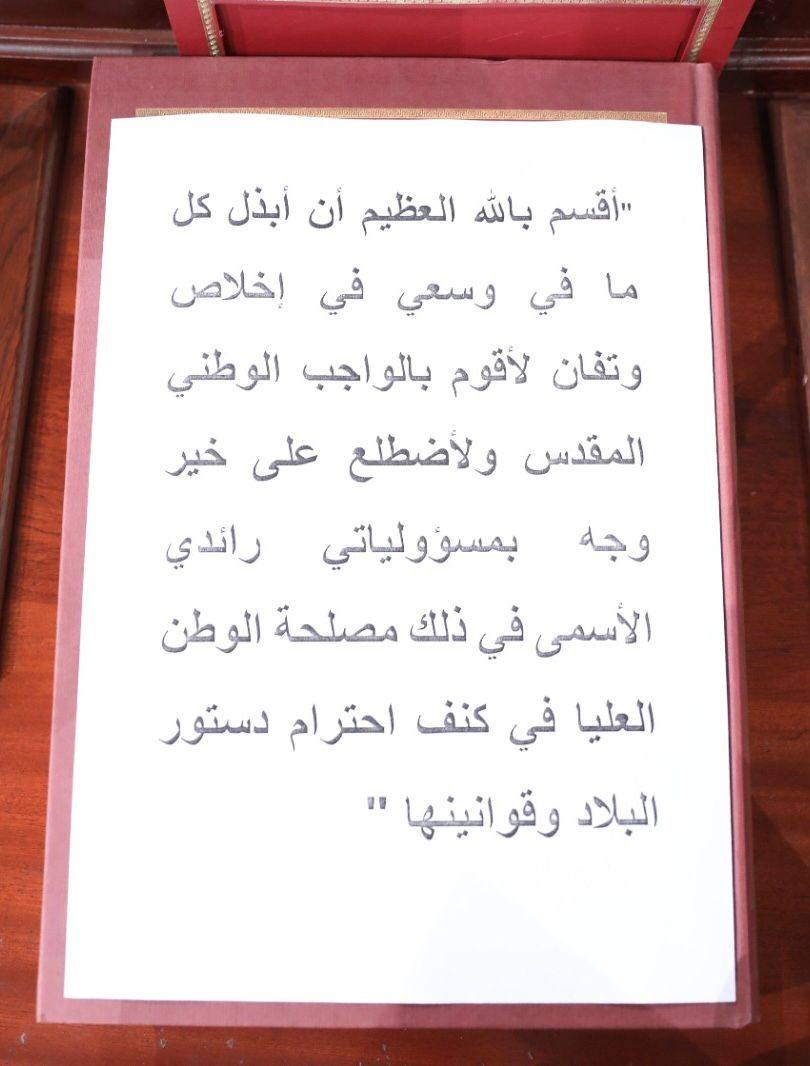 "أقسم بالله العظيم أن أبذل كل
ما في وسعي في إخلاص
وتفان لأقوم بالواجب الوطني
المقدس ولأضطلع على خير
وجه بمسؤولياتي رائدي
الأسمى في ذلك مصلحة الوطن
العليا في كنف احترام دستور
البلاد وقوانينها "